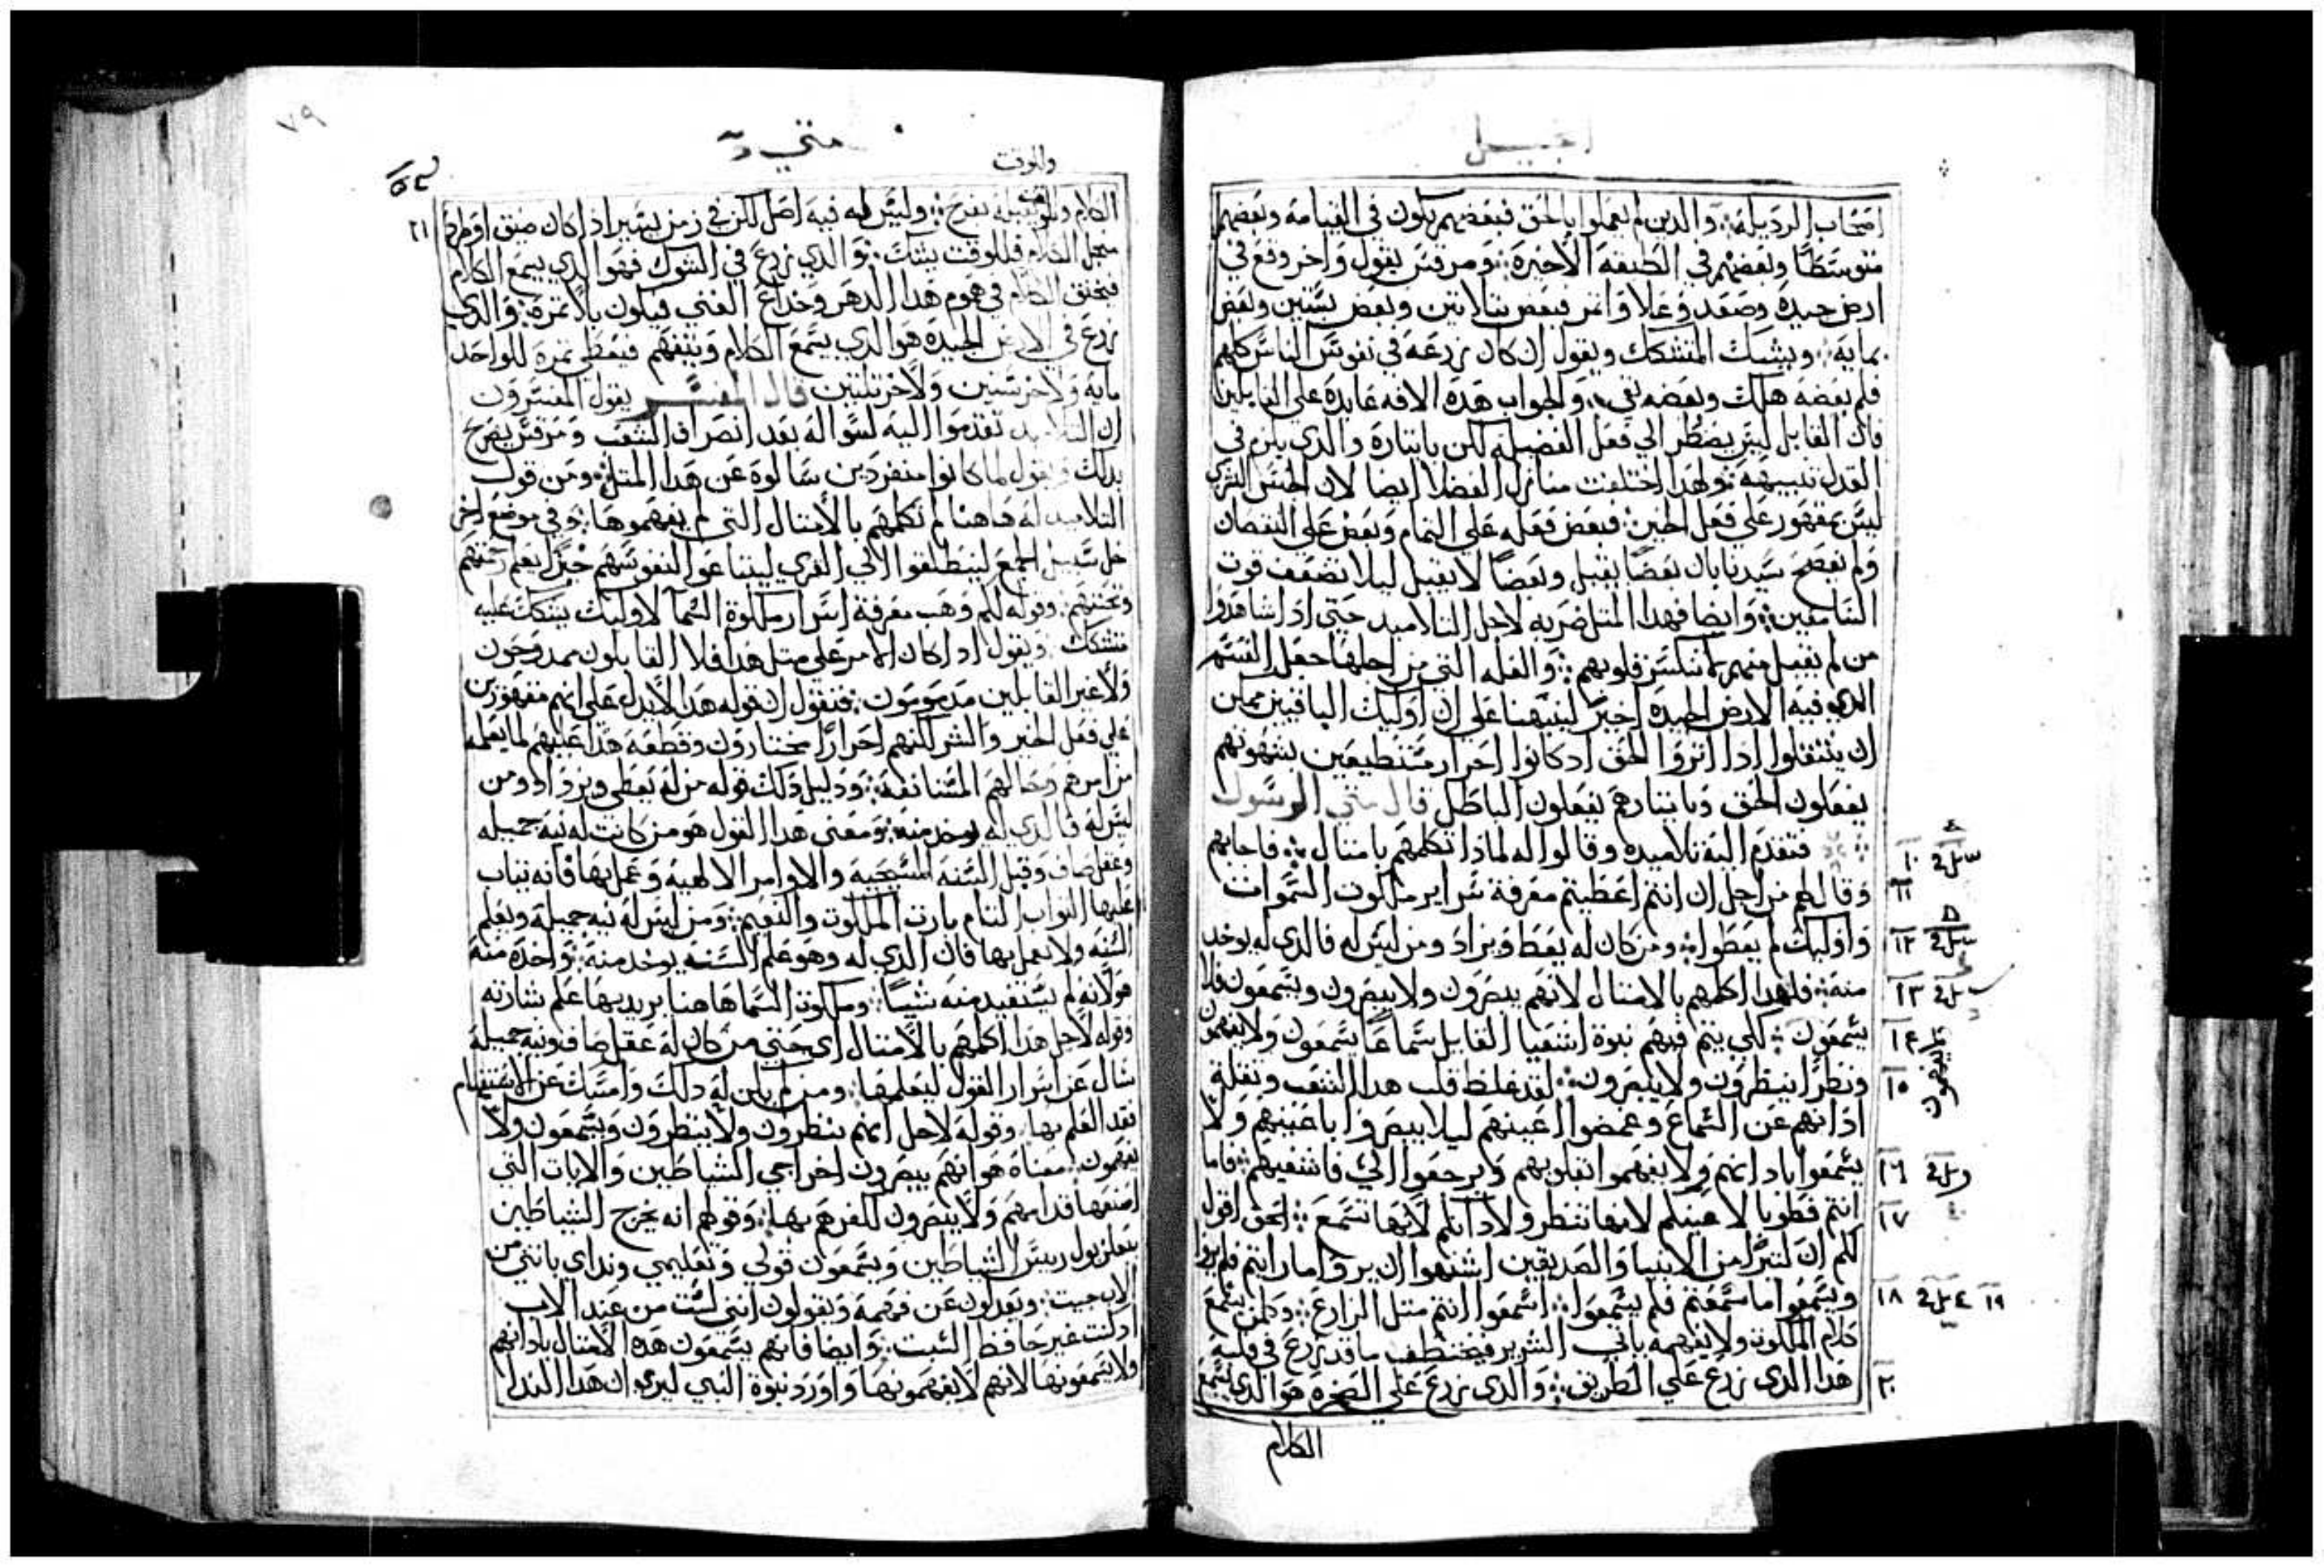 انجيل
اصحاب الرديله والدين لم يعملوا بالحق فبعضهم يكون في القيامه وبعضهم
متوسطا وبعضهم في الطبقه الاخيره ومرقس يقول واخر وقع في
ارض جيده وصعد وعلا واتمر فبعض بتلاتين وبعض بستين وبعض
بمايه ويشك المتشكك ويقول ان كان زرعه في نفوس الناس كلهم
فلم بعضه هلك وبعضه بقي والجواب هده الافه عايده علي القابلين
فان القابل ليس يضطر الي فعل الفضيله لكن بايتاره والدي يلزم في
العدل تنبيهه ولهدا اختلفت منازل الفضلا ايضا لان الجنس البشري
ليس بمقهور علي فعل الخير فبعض فعله علي التمام وبعض علي النقصان
ولم يفصح سيدنا بان بعضا يقبل وبعضا لا يقبل ليلا تضعف قوت
السامعين وايضا فهدا المتل ضربه لاجل التلاميد حتي ادا شاهدوا
من لم يقبل منهم لا تنكسر قلوبهم والعله التي من اجلها جعل القسم
الدي فيه الارض الجيده اخير لينبهنا علي ان اوليك الباقيين يمكن
ان ينتقلوا ادا اتروا الحق اد كانوا احرار مستطيعين بشهوتهم
يفعلون الحق وبايتارهم يفعلون الباطل قال متي الرسول
فتقدم اليه تلاميده وقالوا له لمادا تكلمهم بامتال فاجابهم
وقال لهم من اجل ان انتم اعطيتم معرفة سراير ملكوت السموات
واوليك لم يعطوا ومن كان له يعط ويزاد ومن ليس له فالدي له يوخد
منه فلهدا اكلمهم بالامتال لانهم يبصرون ولا يبصرون ويسمعون فلا
يسمعون لكي يتم فيهم نبوة اشعيا القايل سماعا يسمعون ولا يفهمون
ونظرا ينظرون ولا يبصرون لقد غلظ قلب هدا الشعب وتقلة
ادانهم عن السماع وغمضوا اعينهم ليلا يبصروا باعينهم ولا
يسمعوا بادانهم ولا يفهموا بقلوبهم ويرجعوا الي فاشفيهم فاما
انتم فطوبا لاعينكم لانها تنظر ولادانكم لانها تسمع الحق اقول
لكم ان كتيرا من الانبيا والصديقين اشتهوا ان يروا ما رايتم فلم يروا
ويسمعوا ما سمعتم فلم يسمعوا اسمعوا انتم متل الزارع كلمن يسمع
كلام الملكوت ولا يفهمه ياتي الشرير فيختطف ما قد زرع في قلبه
هدا الدي زرع علي الطريق والدي زرع علي الصخره هو الدي يسمع
الكلام
١٠
١١
١٢
١٣
١٤
١٥
١٦
١٧
١٨
١٩
٢٠
متي
٧٩
وللوقت
٢١
الكلام وللوقت يقبله بفرح وليس له فيه اصل لكن في زمن يسير اد اكان ضيق او طرد
من اجل الكلام فللوقت يشك والدي زرع في الشوك فهو الدي يسمع الكلام
فيخنق الكلام في هموم هدا الدهر وخداع الغني فيكون بلا تمره والدي
زرع في الارض الجيده هو الدي يسمع الكلام ويتفهم فيعطي تمره للواحد
مايه ولاخر ستين ولاخر تلتين قال المفسر يقول المفسرون
ان التلاميد تقدموا اليه لسواله بعد انصراف الشعب ومرقس يصرح
بدلك ويقول لما كانوا منفردين سالوه عن هدا المتل ومن قول
التلاميد له هاهنا لم تكلمهم بالامتال التي لم يفهموها وفي موضع اخر
خل سبيل الجمع لينطلقوا الي القري ليبتاعوا لنفوسهم خبزا يعلم رحمتهم
ومحبتهم وقوله لكم وهب معرفة اسرار ملكوة السما لا لاوليك يتشكك عليه
متشكك ويقول اد اكان الامر علي متل هدا فلا القابلون ممدوحون
ولا غير القابلين مدمومون فنقول ان قوله هدا لا يدل علي انهم مقهورين
علي فعل الخير والشر لكنهم احرارا مختارون وقطعه هدا عليهم لما يعلمه
من امرهم وبحالهم المستانفه ودليل دلك قوله من له يعطي ويزداد ومن
ليس له فالدي له يوخد منه ومعني هدا القول هو من كانت له نيه جميله
وعقل صاف وقبل السنه المسيحيه والاوامر الالهيه وعمل بها فانه يتاب
عليها التواب التام بارت الملكوت والنعيم ومن ليس له نيه جميله ويعلم
السنه ولا يعمل بها فان الدي له وهو علم السنه يوخد منه واخده منه
هو لانه لم يستفيد منه شيا وملكوت السما هاهنا يريد بها علم بشارته
وقوله لاجل هدا اكلمهم بالامتال اي حتي من كان له عقل صاف ونيه جميله
سال عن اسرار القول ليعلمها ومن لم يكن له دلك وامسك عن الاستفهام
تعد العلم بها وقوله لاجل انهم ينظرون ولا ينظرون ويسمعون ولا
يفهمون معناه هو انهم يبصرون اخراجي الشياطين والايات التي
اصنعها قدامهم ولا يبصرون لكفرهم بها وقولهم انه يخرج الشياطين
ببعلزبول رييس الشياطين ويسمعون قولي وتعليمي ونداي بانني من
الاب جيت ويعدلون عن فهمه ويقولون انني لست من عند الاب
اد كنت غير حافظ السبت وايضا فانهم يسمعون هده الامتال بادانهم
ولا يسمعونها لانهم لا يفهمونها واورد نبوة النبي ليري ان هدا الندا